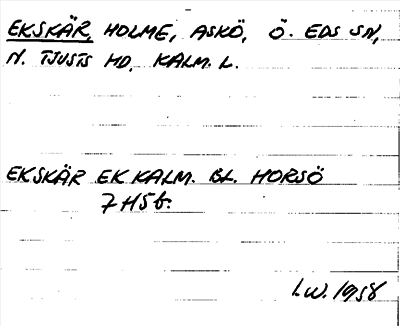 EKSKÄR, HOLME, ASKÖ, Ö. EDS SN,
N. TJUSTS HD, KALM. L.
EKSKÄR EK KALM. BL. HORSÖ
7H5f.
I.W. 1958